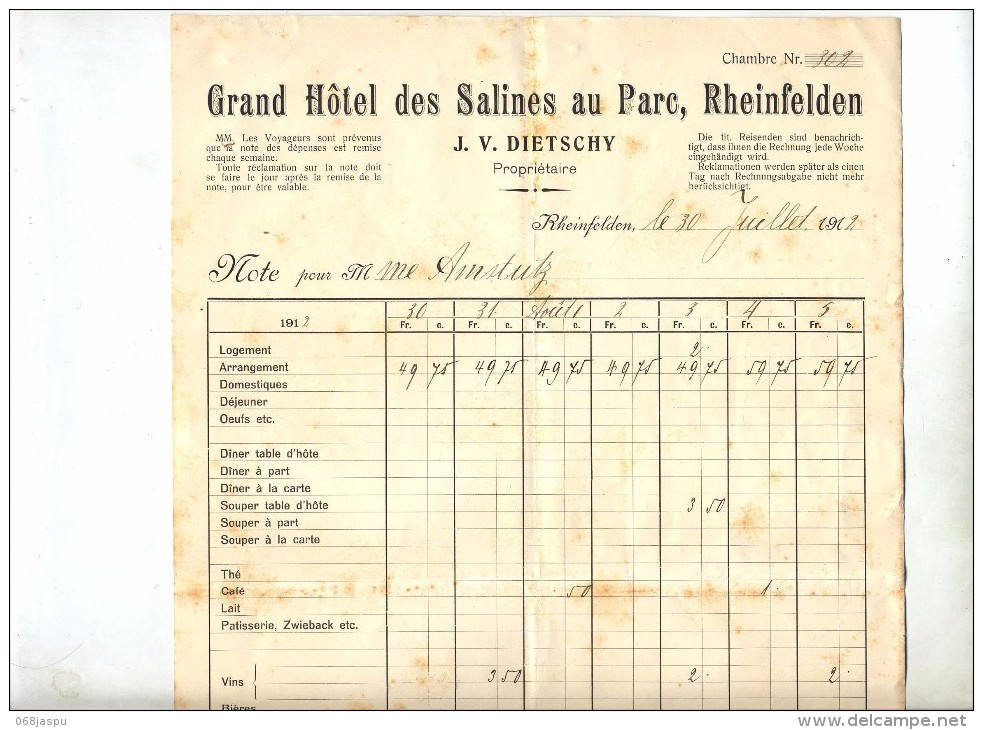 Chambre Nr. 302
Grand Hôtel des Salines au Parc, Rheinfelden
MM. Les Voyageurs sont prévenus
que la note des dépenses est remise
chaque semaine.
Toute réclamation sur la note doit
se faire le jour après la remise de la
note, pour être valable.
J. V. DIETSCHY
Propriétaire
Die tit. Reisenden sind benachrich-
tigt, dass ihnen die Rechnung jede Woche
eingehändigt wird.
Reklamationen werden später als einen
Tag nach Rechnungsabgabe nicht mehr
berücksichtigt.
Rheinfelden, le 30 Juillet 1912
Note pour Mme Amstutz
1912 30 31 Août 1 2 3 4 5
Fr. c. Fr. c. Fr. c. Fr. c. Fr. c. Fr. c. Fr. c.
Logement 2.
Arrangement 49 75 49 75 49 75 49 75 49 75 59 75 59 75
Domestiques
Déjeuner
Oeufs etc.
Dîner table d'hôte
Dîner à part
Dîner à la carte
Souper table d'hôte 3 50
Souper à part
Souper à la carte
Thé
Café . 50 1.
Lait
Patisserie, Zwieback etc.
Vins 3 50 2. 2.
Bières
068jaspu
www.delcampe.net